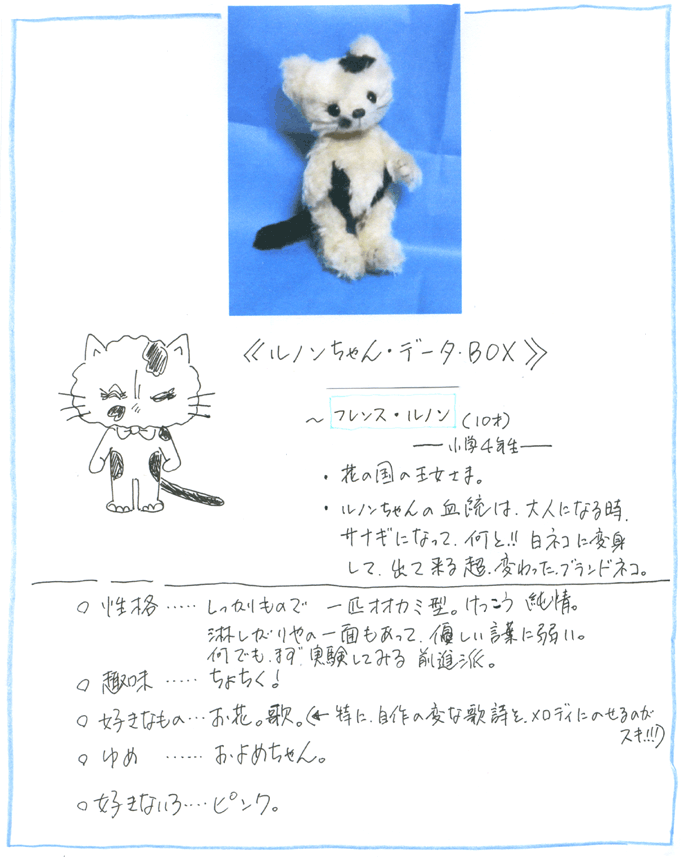 ≪ルノンちゃん・データ・BOX≫
～フレンス・ルノン (10才)
―小学4年生―
・花の国の王女さま。
・ルノンちゃんの血統は、大人になる時、
サナギになって、何と!! 白ネコに変身
して、出て来る超、変わった、ブランドネコ。
○ 性格 ‥‥‥ しっかりもので 一匹オオカミ型。けっこう 純情。
淋しがりやの一面もあって、優しい言葉に弱い。
何でも、まず 実験してみる 前進派。
○ 趣味 ‥‥‥ ちょちく!
○ 好きなもの‥‥お花。歌。(← 特に、自作の変な歌詩を、メロディにのせるのが
スキ!!!)
○ ゆめ ‥‥‥ およめちゃん。
○ 好きないろ‥‥ピンク。